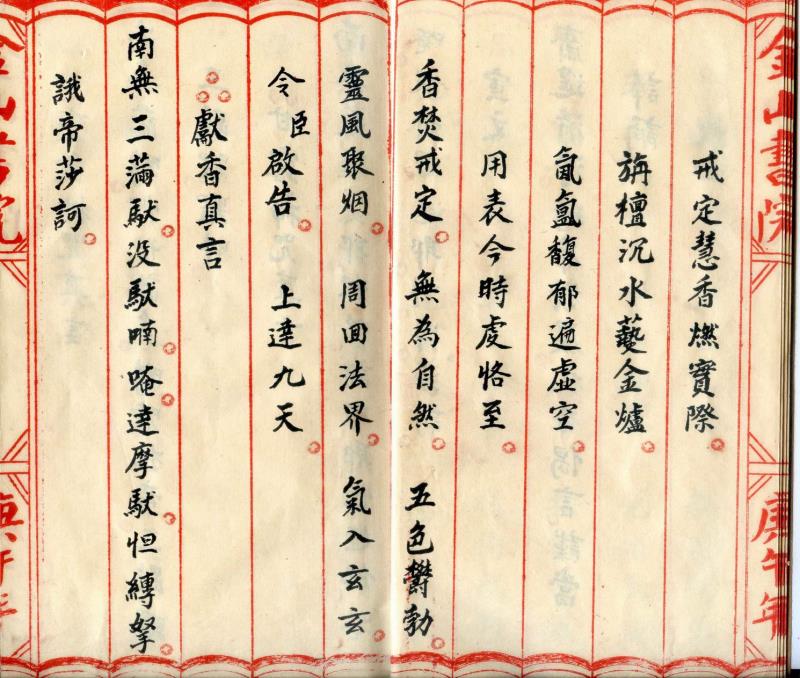 金山書院
庚午年
戒定慧香燃實際
旃檀沉水爇金爐
氤氳馥郁遍虛空
用表今時虔恪至
香焚戒定 無為自然 五色欝勃
靈風聚烟 周回法界 氣入玄玄
令臣啟告 上達九天
獻香真言
南無三滿馱没馱喃唵達摩馱怛縛拏
誐帝莎訶
金山書院
庚午年